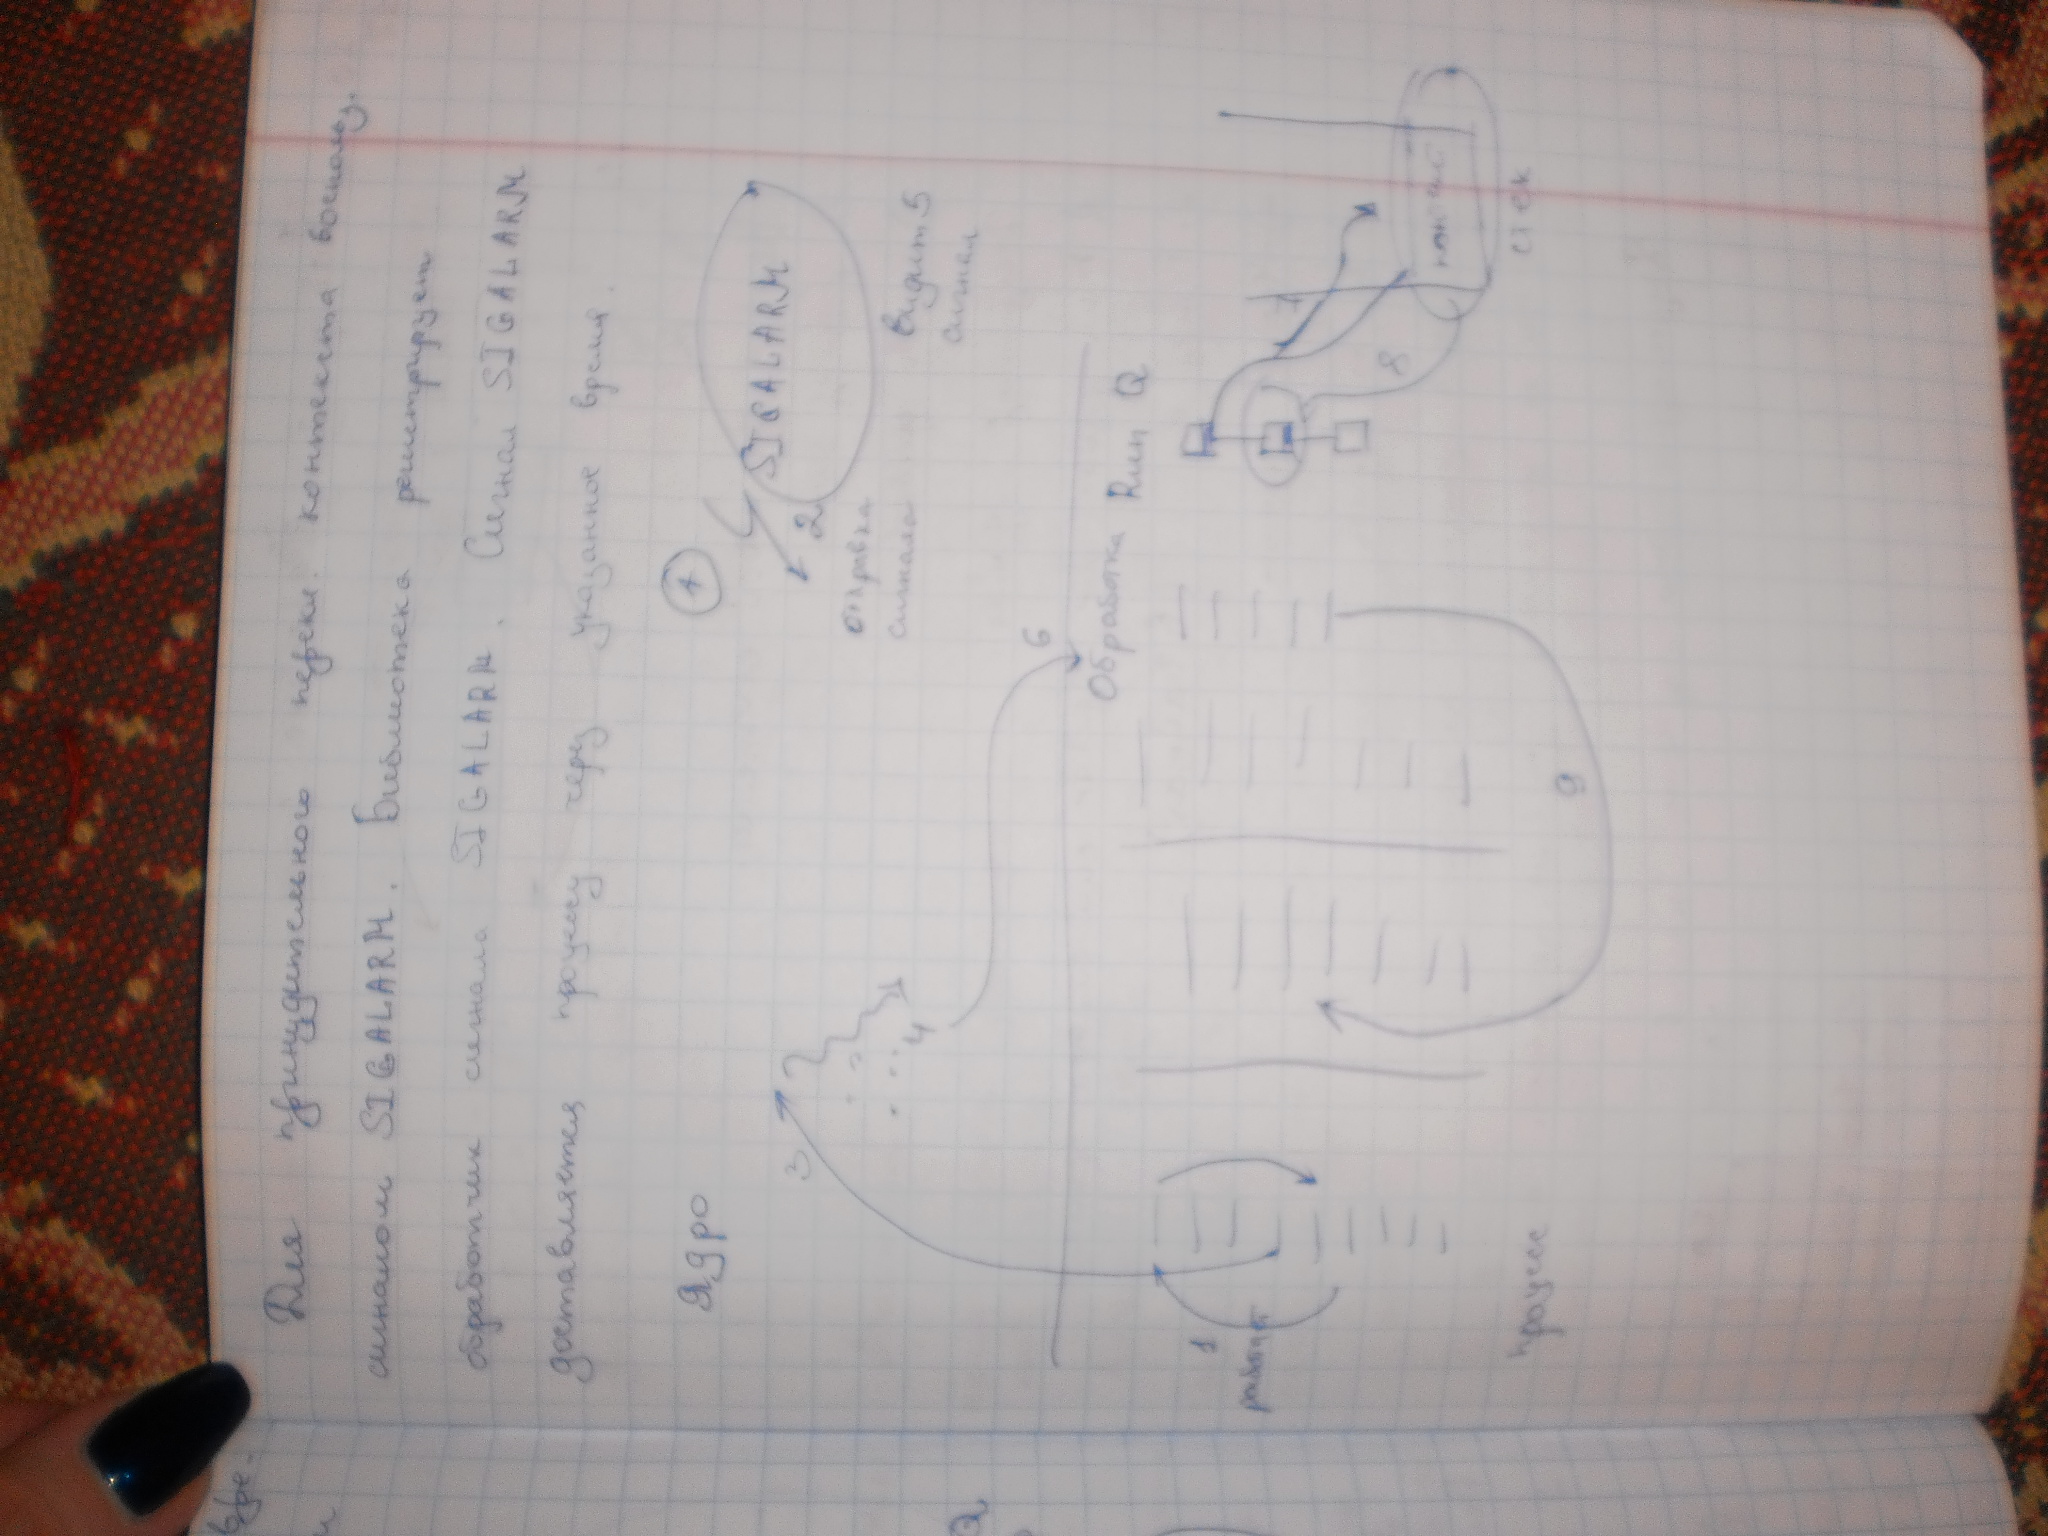 Для принудительного перекл. контекста воспольз.
сигналом SIGALARM. Библиотека регистрирует
обработчик сигнала SIGALARM. Сигнал SIGALARM
доставляется процессу через указанное время.
Ядро
SIGALARM
2
отправка
сигнала
Видит 5
сигнал
3
4
6
Обработка Run Q
1
работает
8
9
процесс
вре.
Q